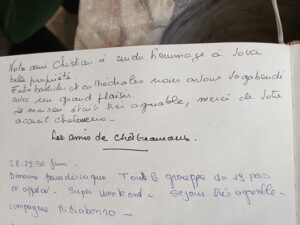 Notre ami Christian à rendu hommage à votre
belle propriété.
Entre bastides et cathédrales nous avons vagabondé
avec un grand plaisir.
La maison était très agréable, merci de votre
accueil chaleureux.
Les amis de
28.29.30 Juin.
Domaine paradisiaque. Tout le groupe de 19 pers
on apprécié. Super weekend. Séjour très agréable.
Compagnie